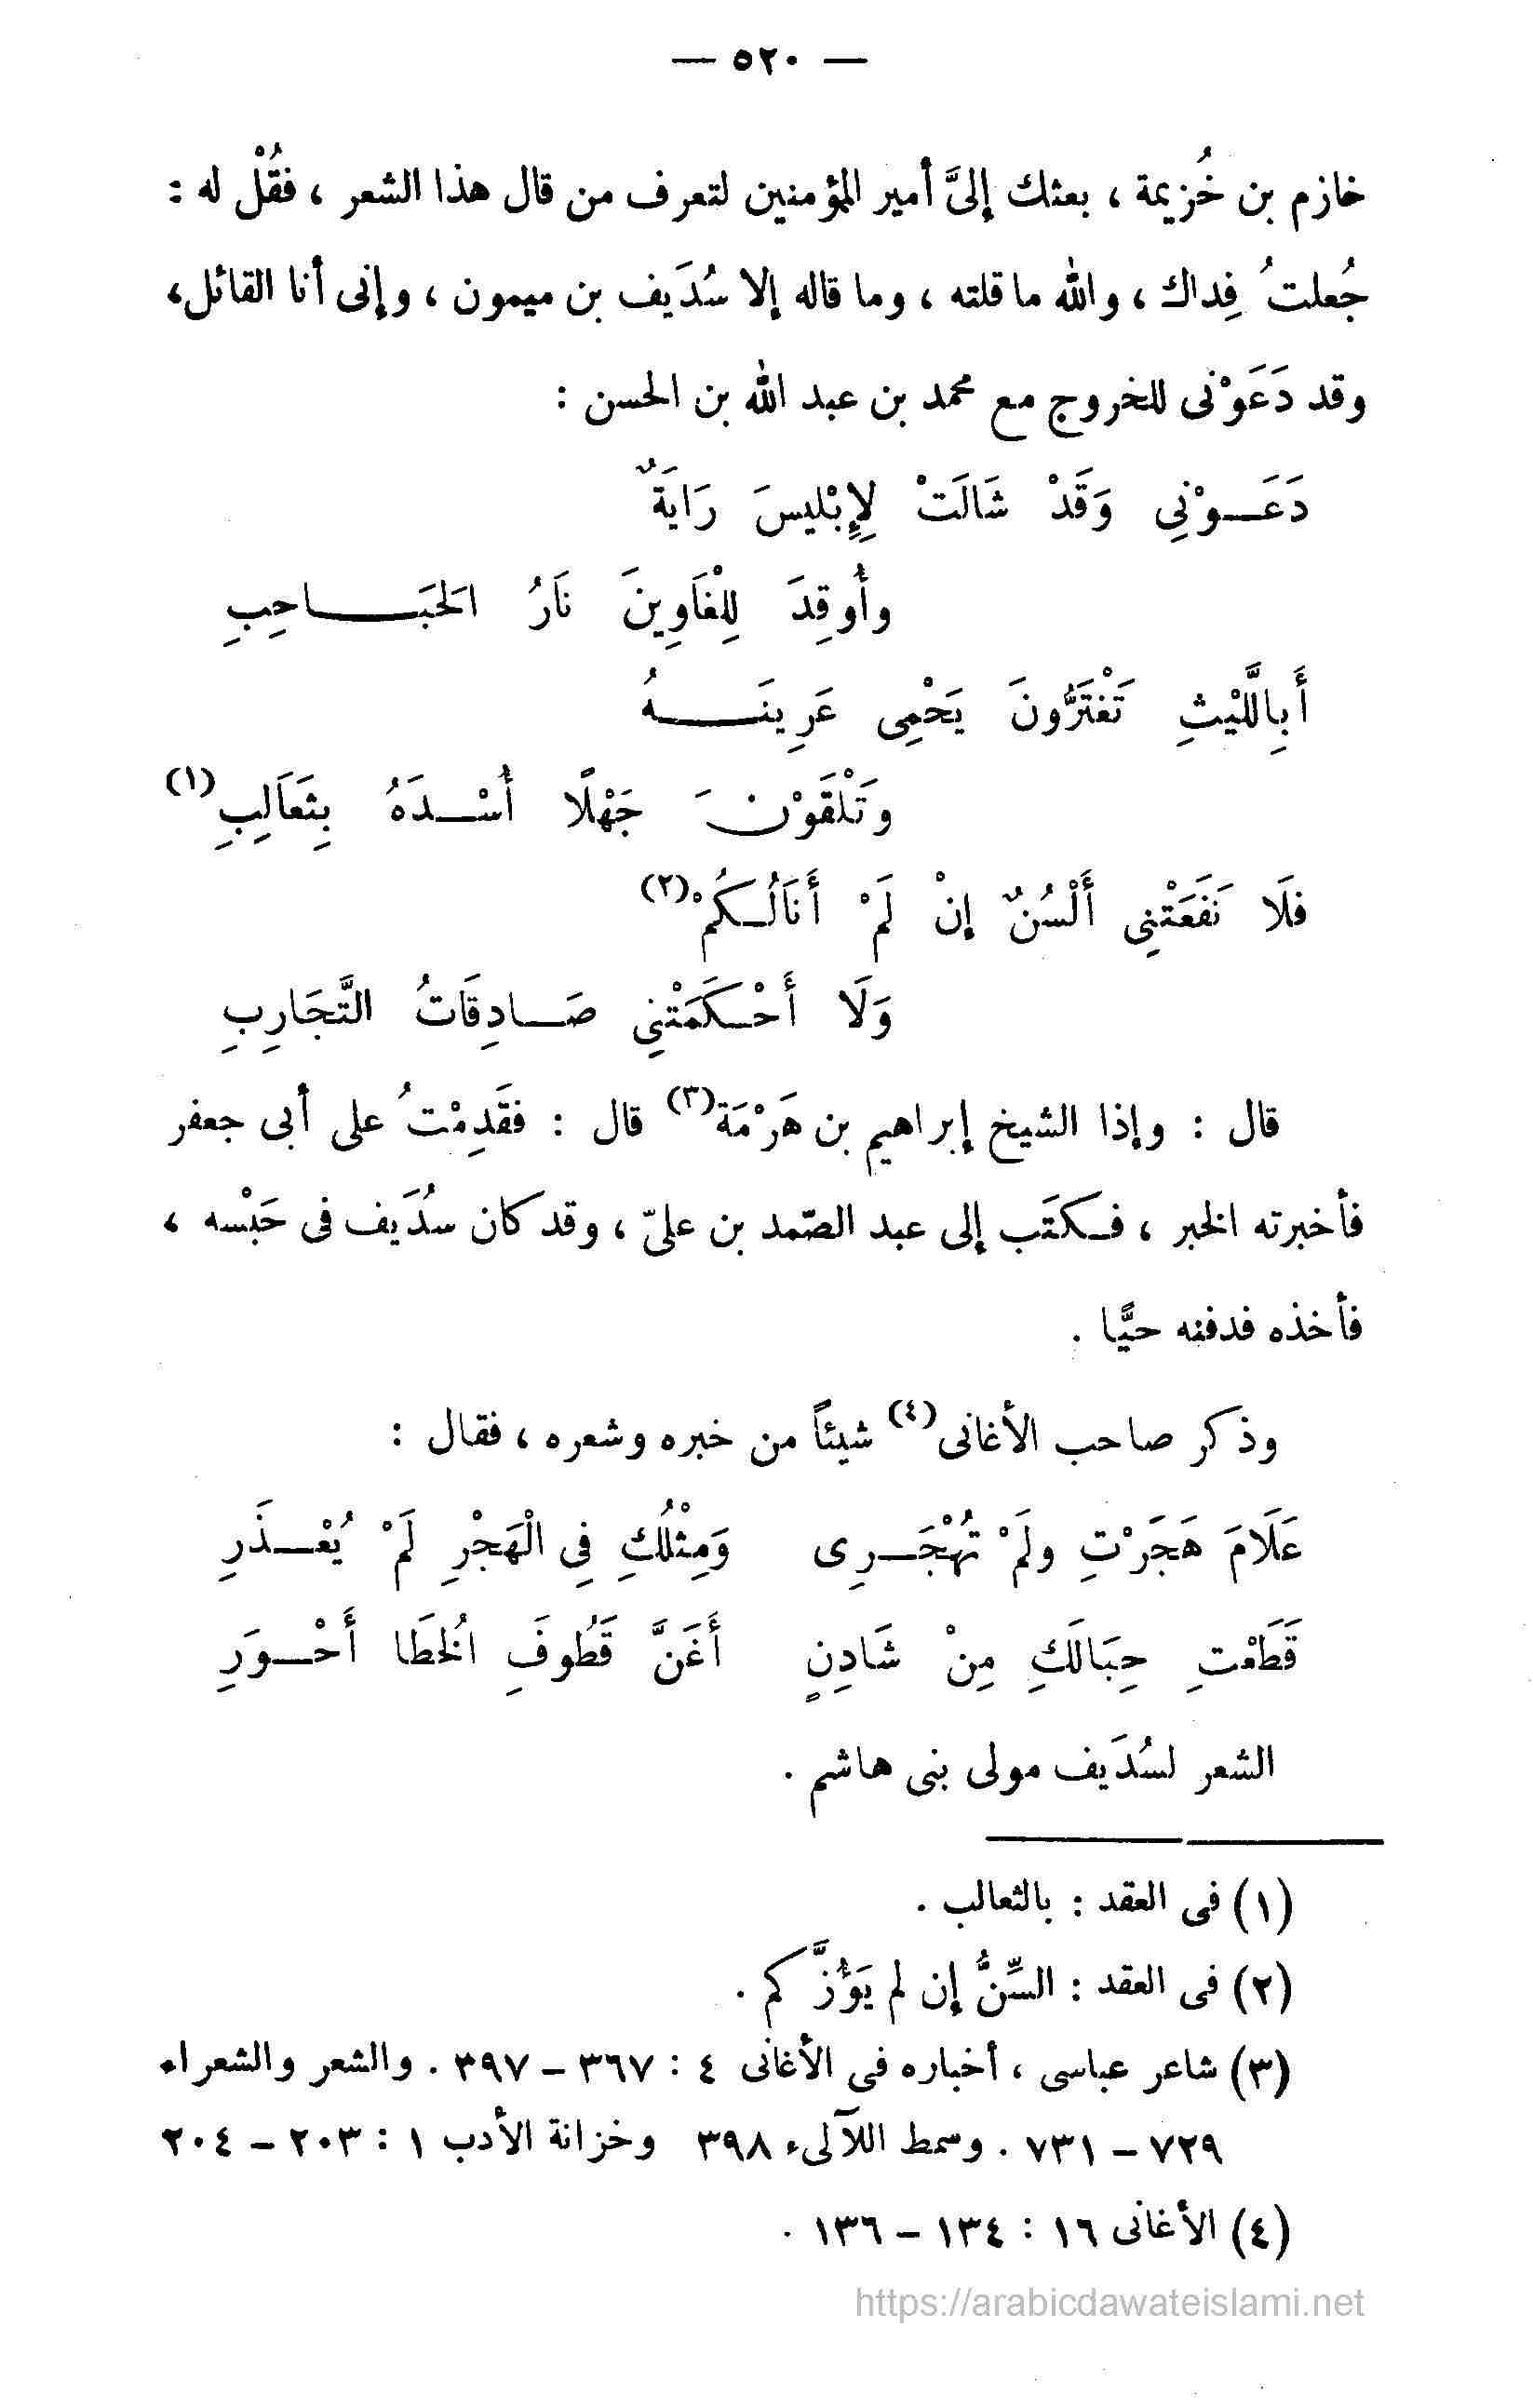 — ٥٢٠ —
خازم بن خُزيمة ، بعثك إلىَّ أمير المؤمنين لتعرف من قال هذا الشعر ، فقُلْ له :
جُعلتُ فِداك ، والله ما قلته ، وما قاله إلا سُدَيف بن ميمون ، وإنى أنا القائل،
وقد دَعَوْنى للخروج مع محمد بن عبد الله بن الحسن :
دَعَــوْنِي وَقَدْ شَالَتْ لِإِبْلِيسَ رَايَةٌ
وأُوقِدَ لِلْغَاوِينَ نَارُ الحَبَــــاحِبِ
أَبِاللَّيْثِ تَغْتَرُّونَ يَحْمِى عَرِينَــــهُ
وَتَلْقَوْنَ جَهْلًا أُسْــدَهُ بِثَعَالِبِ(١)
فلَا نَفَعَتْنِى أَلْسُنٌ إنْ لَمْ أَنَالُــكُمْ(٢)
وَلَا أَحْــكَمَتْنِي صَــادِقَاتُ التَّجَارِبِ
قال : وإذا الشيخ إبراهيم بن هَرْمَة(٣) قال : فقَدِمْتُ على أبى جعفر
فأخبرته الخبر ، فــكتَب إلى عبد الصّمد بن علىّ ، وقد كان سُدَيف فى حَبْسه ،
فأخذه فدفنه حيًّا .
وذكر صاحب الأغانى(٤) شيئاً من خبره وشعره ، فقال :
عَلَامَ هَجَرْتِ ولَمْ تُهْجَــرِى وَمِثْلُكِ فِي الْهَجْرِ لَمْ يُعْــذَرِ
قَطَعْتِ حِبَالَكِ مِنْ شَادِنٍ أَغَنَّ قَطُوفَ الخُطَا أَحْــوَرِ
الشعر لسُدَيف مولى بنى هاشم .
(١) فى العقد : بالثعالب .
(٢) فى العقد : السِّنُّ إن لم يَؤُزَّكم .
(٣) شاعر عباسى ، أخباره فى الأغانى ٤ : ٣٦٧ – ٣٩٧ . والشعر والشعراء
٧٢٩ – ٧٣١ . وسمط اللآلىء ٣٩٨ وخزانة الأدب ١ : ٢٠٣ – ٢٠٤
(٤) الأغانى ١٦ : ١٣٤ – ١٣٦ .
https://arabicdawateislami.net